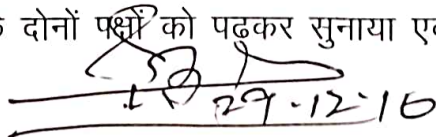 दोनों पक्षों को पढ़कर सुनाया
29-12-10